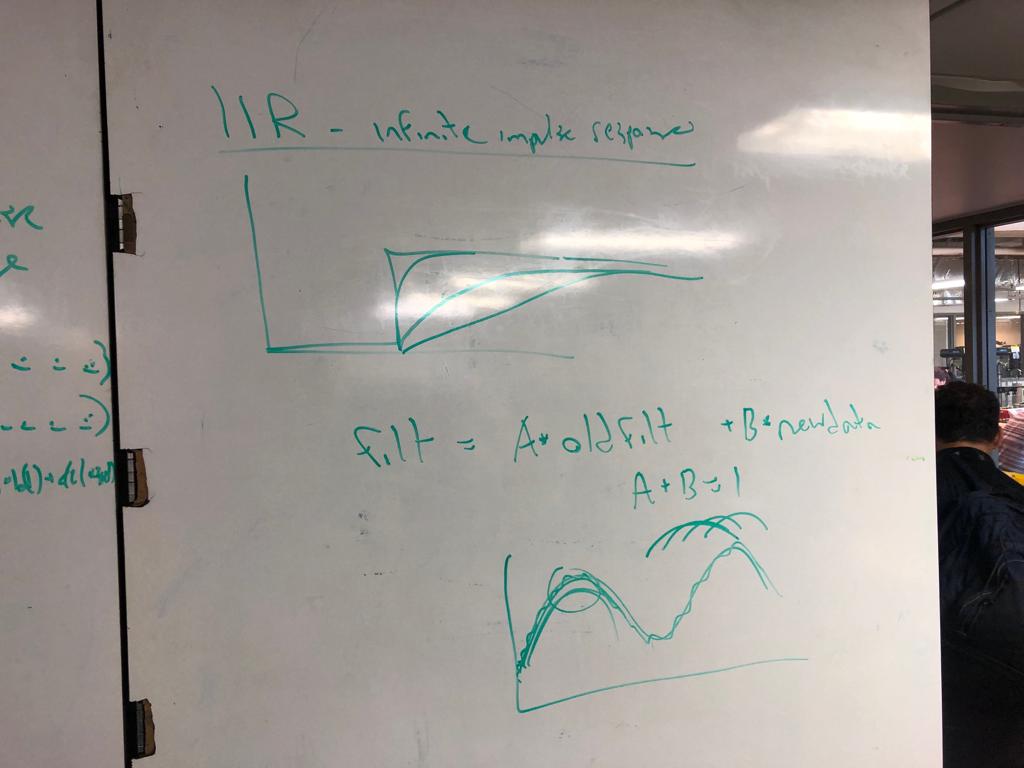 IIR - infinite impulse response
filt = A* oldfilt + B* newdata
A + B = 1